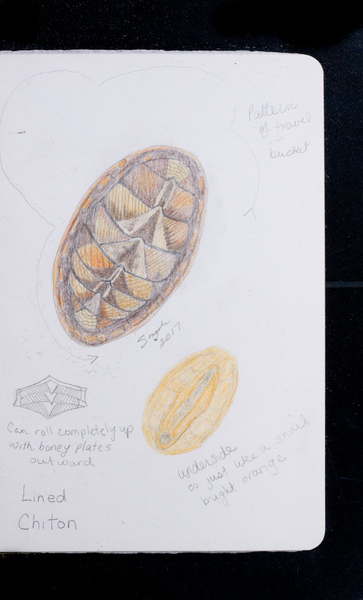 Pattern
of travel
in
bucket
2017
Can roll completely up
with boney plates
outward
underside
is just like a snail
bright orange
Lined
Chiton